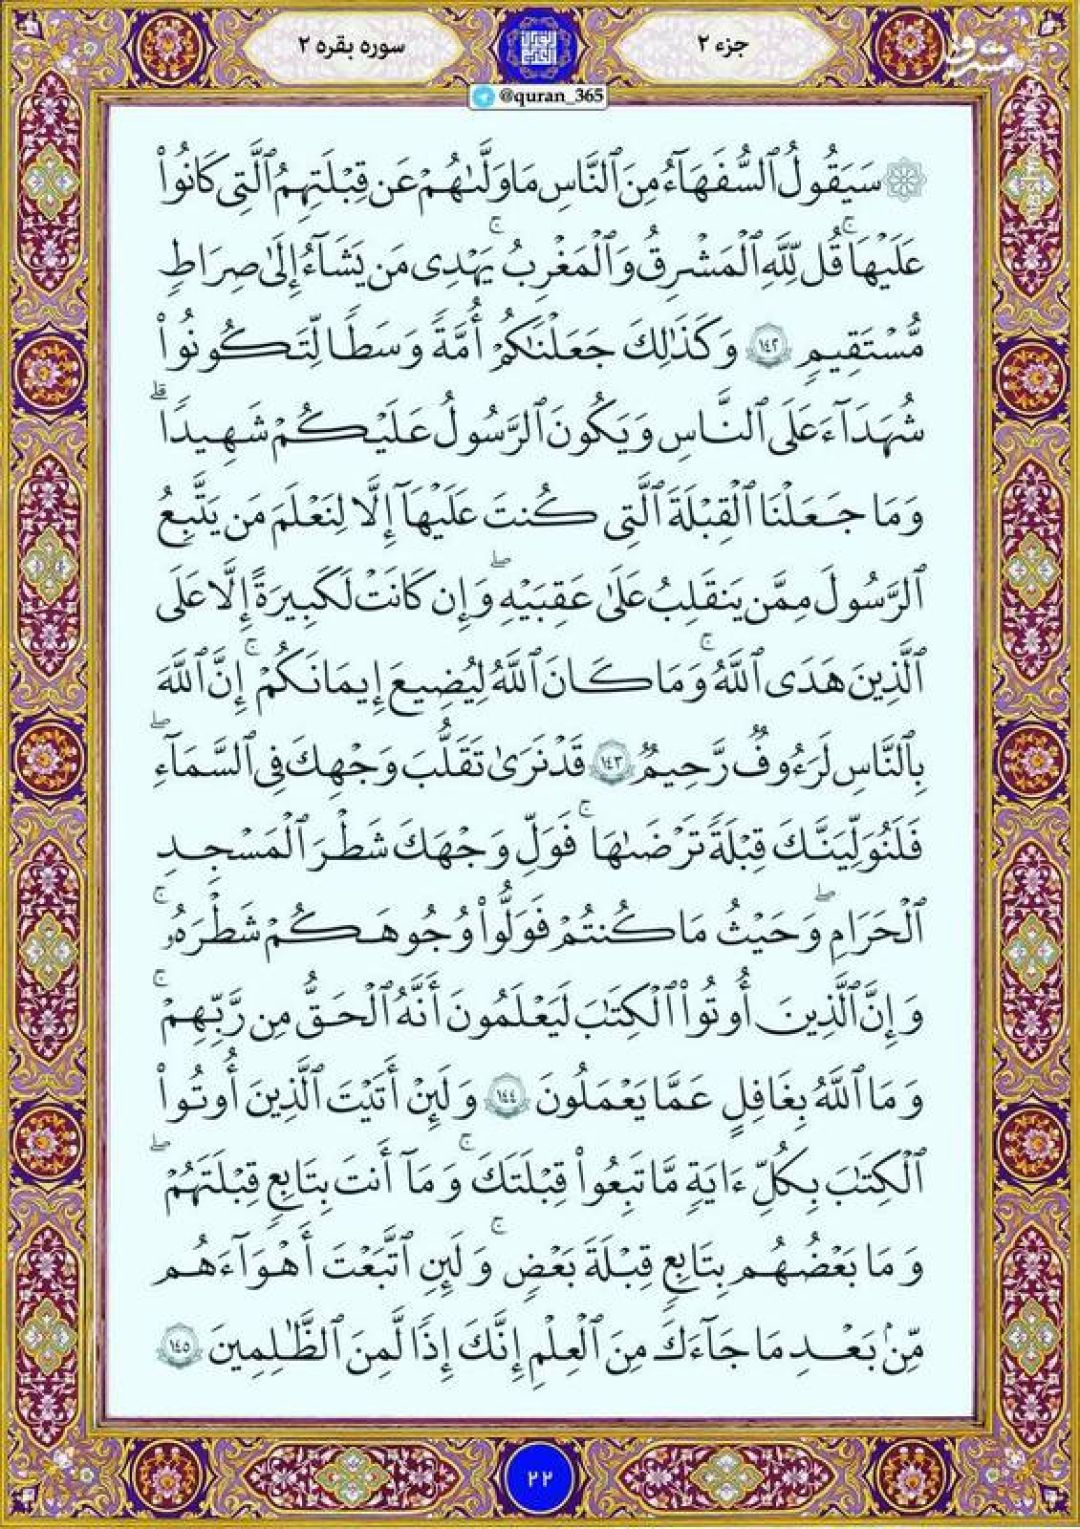 جزء ٢
سوره بقره ٢
@quran_365
۞ سَيَقُولُ ٱلسُّفَهَآءُ مِنَ ٱلنَّاسِ مَا وَلَّىٰهُمْ عَن قِبْلَتِهِمُ ٱلَّتِى كَانُوا۟
عَلَيْهَا ۚ قُل لِّلَّهِ ٱلْمَشْرِقُ وَٱلْمَغْرِبُ ۚ يَهْدِى مَن يَشَآءُ إِلَىٰ صِرَاطٍ
مُّسْتَقِيمٍ ١٤٢ وَكَذَٰلِكَ جَعَلْنَٰكُمْ أُمَّةً وَسَطًا لِّتَكُونُوا۟
شُهَدَآءَ عَلَى ٱلنَّاسِ وَيَكُونَ ٱلرَّسُولُ عَلَيْكُمْ شَهِيدًا ۗ
وَمَا جَعَلْنَا ٱلْقِبْلَةَ ٱلَّتِى كُنتَ عَلَيْهَآ إِلَّا لِنَعْلَمَ مَن يَتَّبِعُ
ٱلرَّسُولَ مِمَّن يَنقَلِبُ عَلَىٰ عَقِبَيْهِ ۖ وَإِن كَانَتْ لَكَبِيرَةً إِلَّا عَلَى
ٱلَّذِينَ هَدَى ٱللَّهُ ۚ وَمَا كَانَ ٱللَّهُ لِيُضِيعَ إِيمَانَكُمْ ۚ إِنَّ ٱللَّهَ
بِٱلنَّاسِ لَرَءُوفٌ رَّحِيمٌ ١٤٣ قَدْ نَرَىٰ تَقَلُّبَ وَجْهِكَ فِى ٱلسَّمَآءِ ۖ
فَلَنُوَلِّيَنَّكَ قِبْلَةً تَرْضَىٰهَا ۚ فَوَلِّ وَجْهَكَ شَطْرَ ٱلْمَسْجِدِ
ٱلْحَرَامِ ۖ وَحَيْثُ مَا كُنتُمْ فَوَلُّوا۟ وُجُوهَكُمْ شَطْرَهُۥ ۚ
وَإِنَّ ٱلَّذِينَ أُوتُوا۟ ٱلْكِتَٰبَ لَيَعْلَمُونَ أَنَّهُ ٱلْحَقُّ مِن رَّبِّهِمْ ۗ
وَمَا ٱللَّهُ بِغَٰفِلٍ عَمَّا يَعْمَلُونَ ١٤٤ وَلَئِنْ أَتَيْتَ ٱلَّذِينَ أُوتُوا۟
ٱلْكِتَٰبَ بِكُلِّ ءَايَةٍ مَّا تَبِعُوا۟ قِبْلَتَكَ ۚ وَمَآ أَنتَ بِتَابِعٍ قِبْلَتَهُمْ ۚ
وَمَا بَعْضُهُم بِتَابِعٍ قِبْلَةَ بَعْضٍ ۚ وَلَئِنِ ٱتَّبَعْتَ أَهْوَآءَهُم
مِّنۢ بَعْدِ مَا جَآءَكَ مِنَ ٱلْعِلْمِ إِنَّكَ إِذًا لَّمِنَ ٱلظَّٰلِمِينَ ١٤٥
٢٢